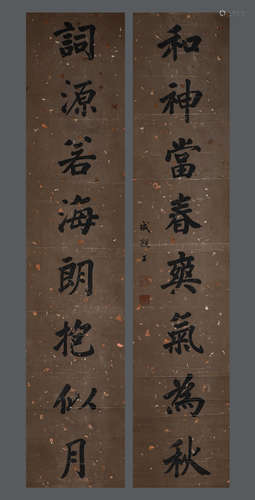 和神當春爽氣為秋
成親王
詞源若海朗抱似月